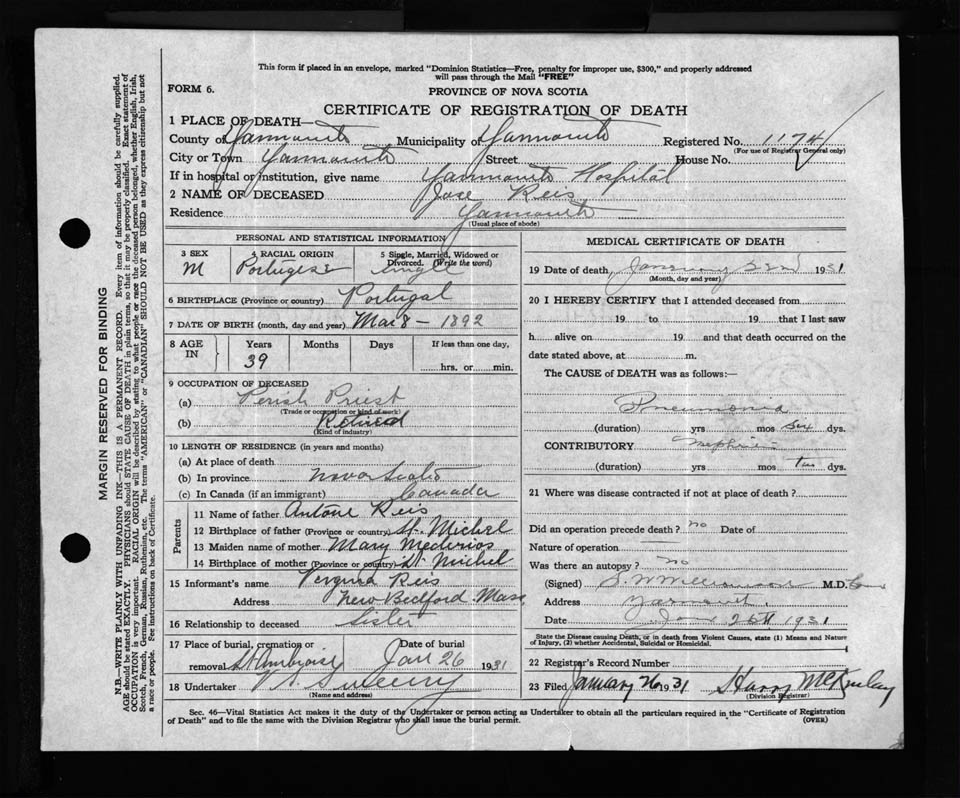 This form if placed in an envelope, marked "Dominion Statistics—Free, penalty for improper use, $300," and properly addressed
will pass through the Mail "FREE"
FORM 6.
PROVINCE OF NOVA SCOTIA
CERTIFICATE OF REGISTRATION OF DEATH
1 PLACE OF DEATH—
County of Yarmouth Municipality of Yarmouth Registered No. 1174
(For use of Registrar General only)
City or Town Yarmouth Street House No.
If in hospital or institution, give name Yarmouth Hospital
2 NAME OF DECEASED Jose Reis
Residence Yarmouth
(Usual place of abode)
PERSONAL AND STATISTICAL INFORMATION
3 SEX
M
4 RACIAL ORIGIN
Portugese
5 Single, Married, Widowed or
Divorced. (Write the word)
single
6 BIRTHPLACE (Province or country) Portugal
7 DATE OF BIRTH (month, day and year) Mar 8 — 1892
8 AGE IN
Years Months Days If less than one day,
39 hrs. or min.
9 OCCUPATION OF DECEASED
(a) Perish Priest
(Trade or occupation or kind of work)
(b) Retired
(Kind of industry)
10 LENGTH OF RESIDENCE (in years and months)
(a) At place of death
(b) In province Nova Scotia
(c) In Canada (if an immigrant) Canada
Parents
11 Name of father Antone Reis
12 Birthplace of father (Province or country) St. Michel
13 Maiden name of mother Mary Mederios
14 Birthplace of mother (Province or country) St. Michel
15 Informant's name Vergina Reis
Address New Bedford Mass
16 Relationship to deceased Sister
17 Place of burial, cremation or Date of burial
removal St Ambroise Jan 26 1931
18 Undertaker V. A. Sweeny
(Name and address)
MEDICAL CERTIFICATE OF DEATH
19 Date of death, January 22nd 1931
(Month, day and year)
20 I HEREBY CERTIFY that I attended deceased from
19 to 19 that I last saw
h alive on 19 and that death occurred on the
date stated above, at m.
The CAUSE of DEATH was as follows:—
Pneumonia
(duration) yrs mos six dys.
CONTRIBUTORY Nephritis
(duration) yrs mos two dys.
21 Where was disease contracted if not at place of death?
Did an operation precede death? no Date of
Nature of operation
Was there an autopsy? no
(Signed) S. W. Williamson M.D.
Address Yarmouth
Date Jan 25th 1931
State the Disease causing Death, or in death from Violent Causes, state (1) Means and Nature
of Injury, (2) whether Accidental, Suicidal or Homicidal.
22 Registrar's Record Number
23 Filed January 26 1931 Harry McKinley
(Division Registrar)
Sec. 46—Vital Statistics Act makes it the duty of the Undertaker or person acting as Undertaker to obtain all the particulars required in the "Certificate of Registration
of Death" and to file the same with the Division Registrar who shall issue the burial permit.
(OVER)
MARGIN RESERVED FOR BINDING
N.B.—WRITE PLAINLY WITH UNFADING INK—THIS IS A PERMANENT RECORD. Every item of information should be carefully supplied.
AGE should be stated EXACTLY. PHYSICIANS should STATE CAUSE OF DEATH in plain terms, so that it may be properly classified. Exact statement of
OCCUPATION is very important. RACIAL ORIGIN will be described by stating to what people or race the deceased person belonged, whether English, Irish,
Scotch, French, German, Russian, Ruthenian, etc. The terms "AMERICAN" or "CANADIAN" SHOULD NOT BE USED as they express citizenship but not
a race or people. See instructions on back of Certificate.